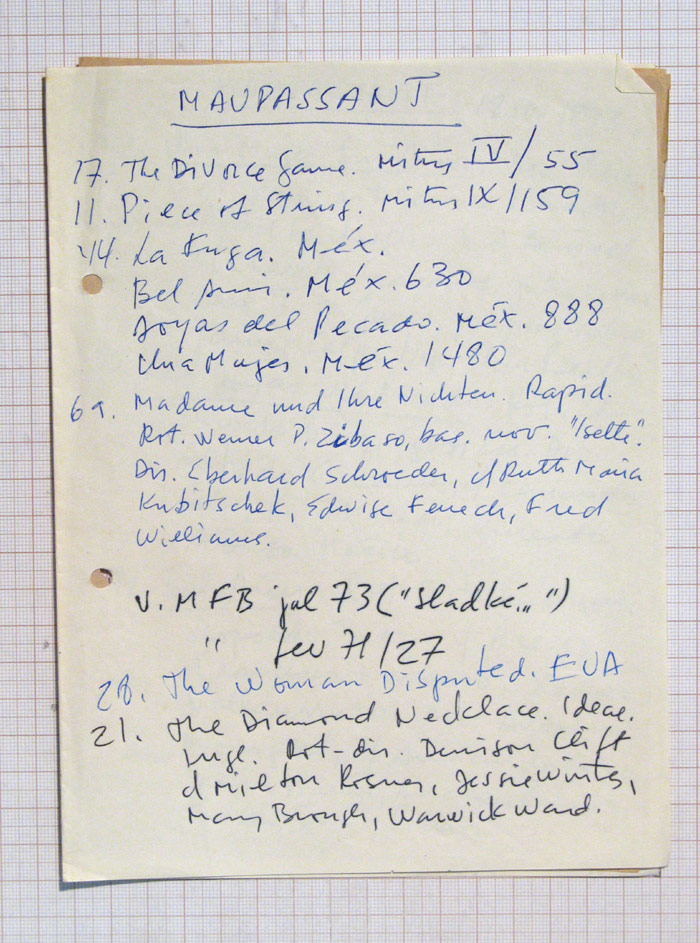 MAUPASSANT
17. The Divorce Game. Mitry IV / 55
11. Piece of String. Mitry IX / 159
44. La Fuga. Méx.
Bel Ami. Méx. 630
Joyas del Pecado. Méx. 888
Una Mujer. Méx. 1480
69. Madame und Ihre Nichten. Rapid.
Rot. Werner P. Zibaso, bas. nov. "Isette".
Dir. Eberhard Schroeder, c/ Ruth Maria
Kubitschek, Edwise Fenech, Fred
Williams.
V. MFB jul 73 ("Sladké...")
" fev 71/27
28. The Woman Disputed. EUA
21. The Diamond Necklace. Ideal.
Ingl. Rot-dir. Denison Clift
c/ Milton Rosmer, Jessie Winter,
Mary Brough, Warwick Ward.